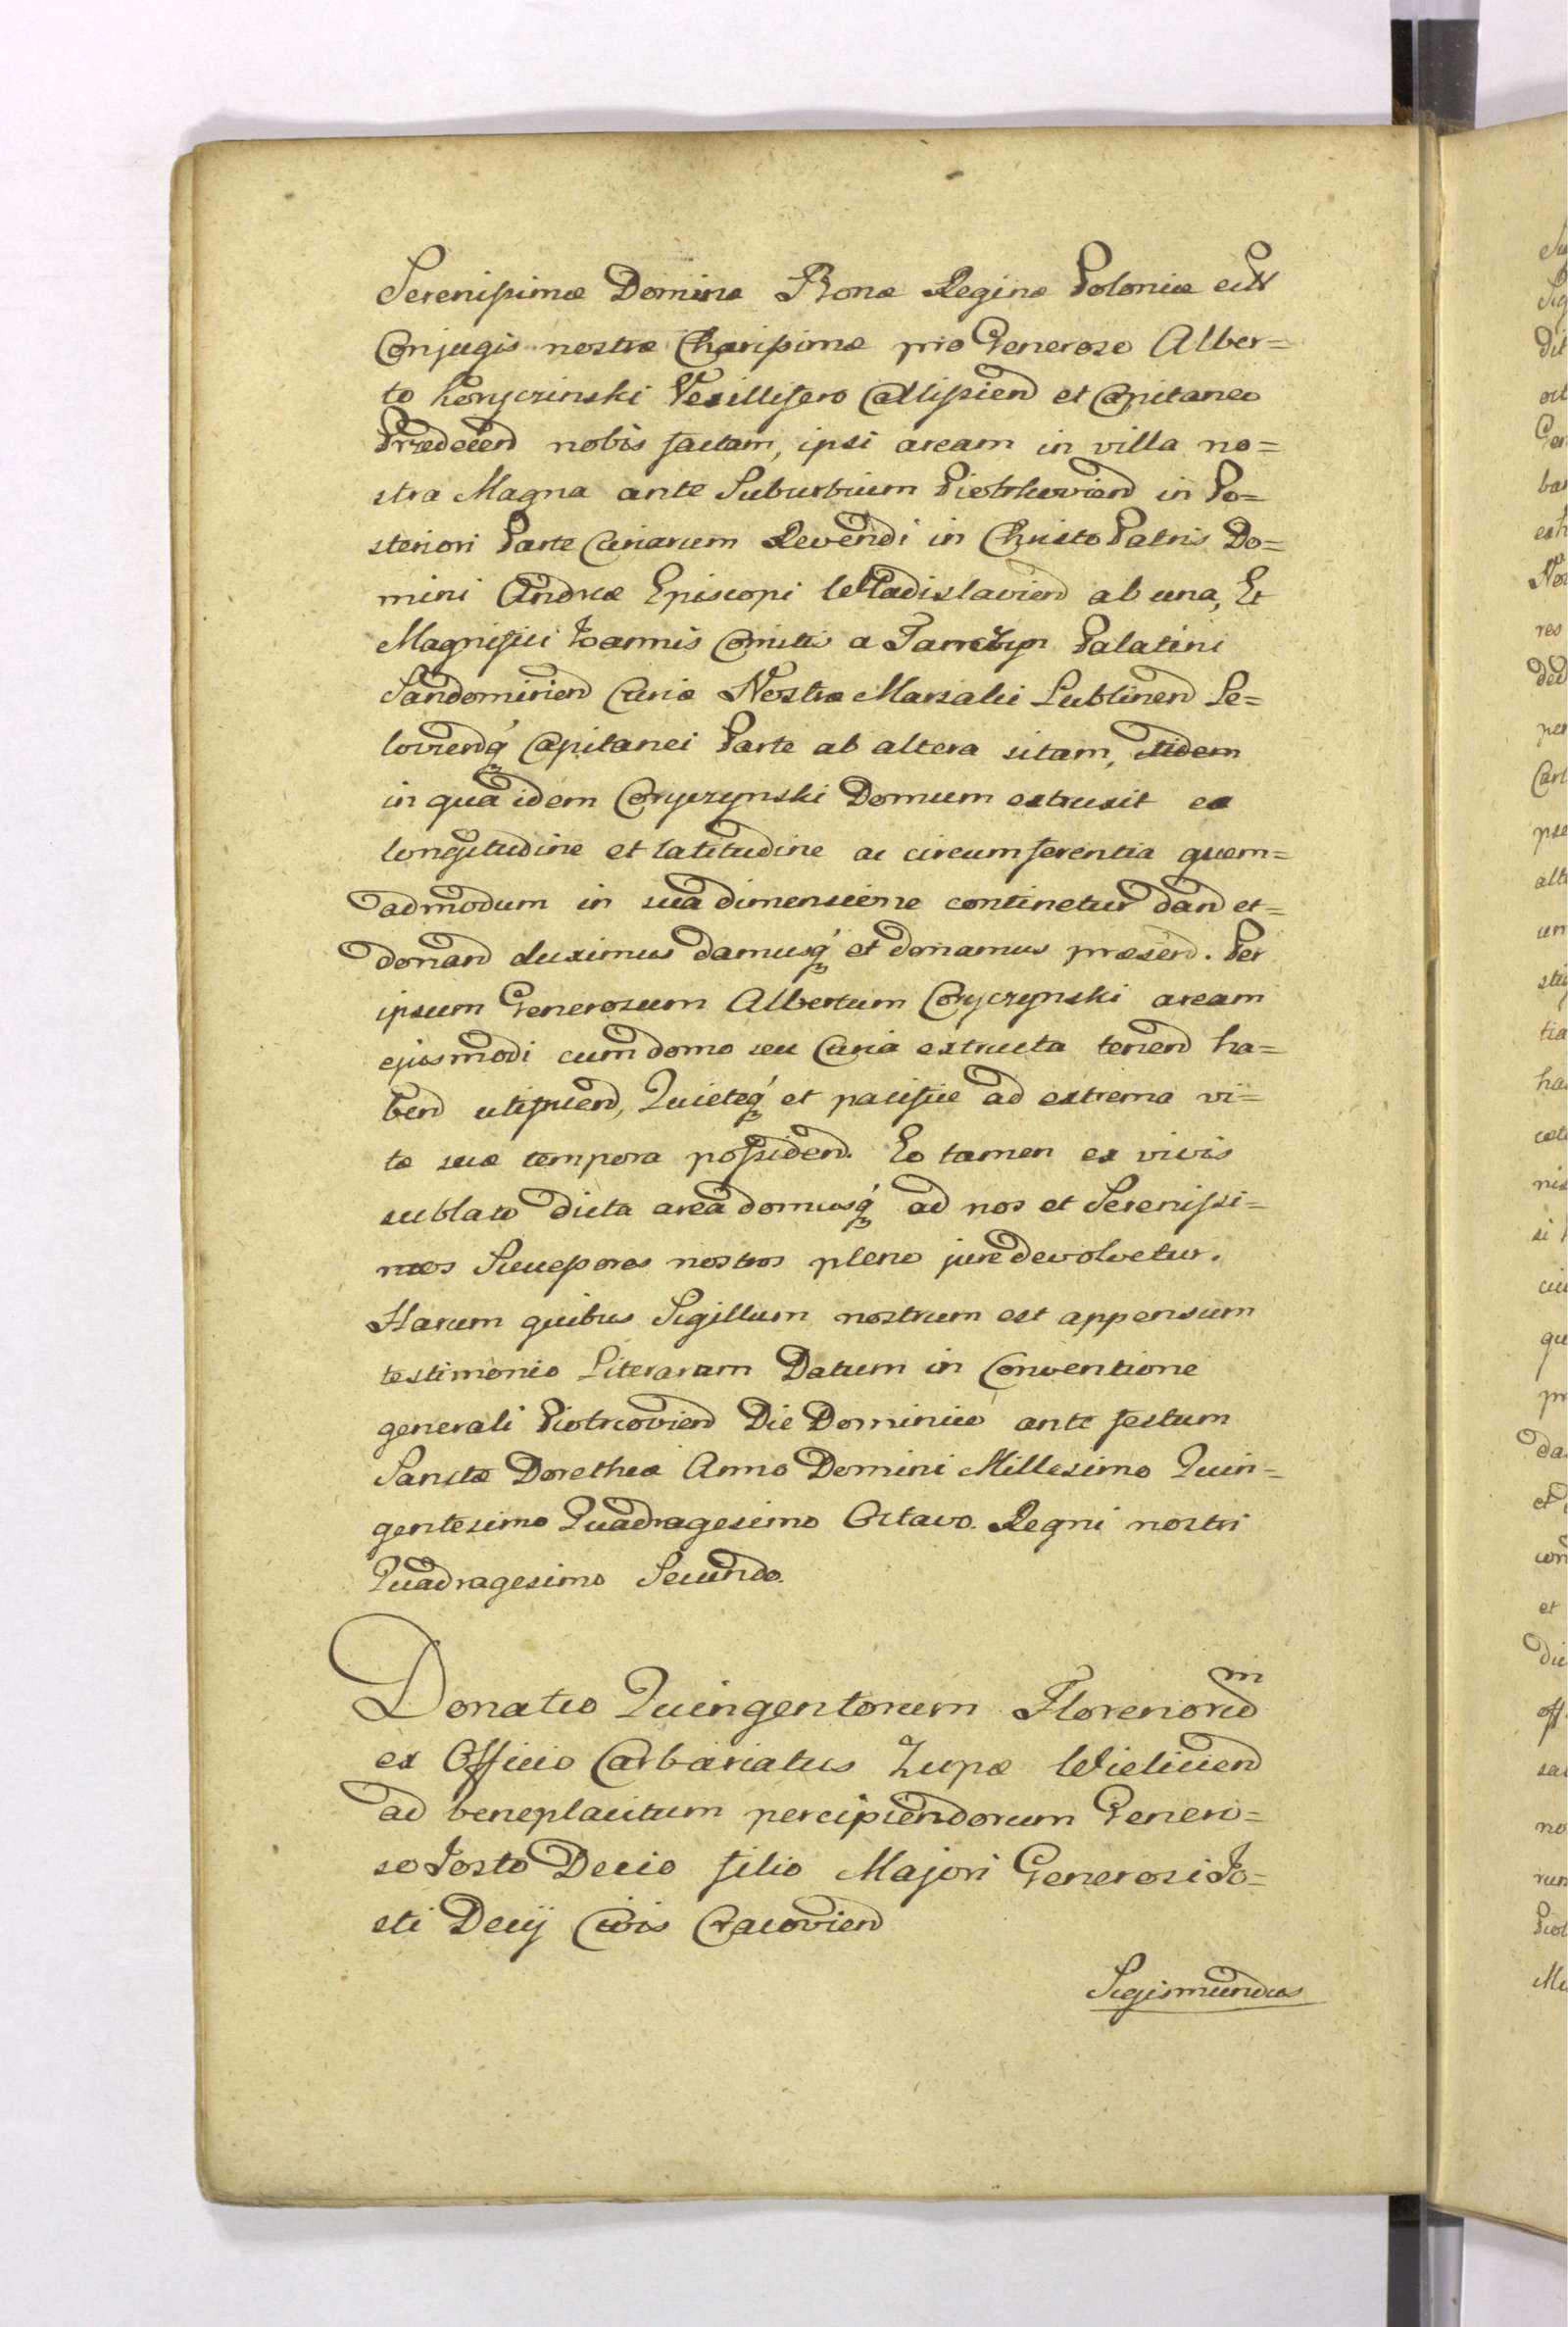 Serenissimæ Dominæ Bonæ Reginæ Poloniæ etc
Conjugis nostræ Charissimæ pro Generoso Alber=
to Koryczinski Vexillifero Callissien et Capitaneo
Prædecen nobis factam, ipsi aream in villa no=
stra Magna ante Suburbium Piotrkovien in Po=
steriori Parte Curiarum Revendi in Christo Patris Do=
mini Andreæ Episcopi Wladislavien ab una, Et
Magnifici Joannis Comitis a Tarnow Palatini
Sandomirien Curiæ Nostræ Marsalci Lublinen
lovienq Capitanei Parte ab altera sitam,
in qua idem Coryczynski Domum extruxit ea
longitudine et latitudine ac circumferentia quem=
admodum in sua dimensione continetur dan et=
donan duximus damusq et donamus præsen. Per
ipsum Generosum Albertum Coryczynski aream
ejusmodi cum domo seu Curia extructa tenen ha=
ben utifruen, Quieteq et pacifice ad extrema vi=
tæ suæ tempora possiden. Eo tamen ex vivis
sublato dicta area domusq ad nos et Serenissi=
mos Successores nostros pleno jure devolvetur.
Harum quibus Sigillum nostrum est appensum
testimonio Literarum Datum in Conventione
generali Piotrcovien Die Dominico ante festum
Sanctæ Dorotheæ Anno Domini Millesimo Quin=
gentesimo Quadragesimo Octavo. Regni nostri
Quadragesimo Secundo.
Donatio Quingentorum Florenorum
ex Officio Carbariatus Zupæ Wielicien
ad beneplacitum percipiendorum Genero=
so Josto Decio filio Majori Generosi Jo=
sti Decij Civis Cracovien
Sigismundus